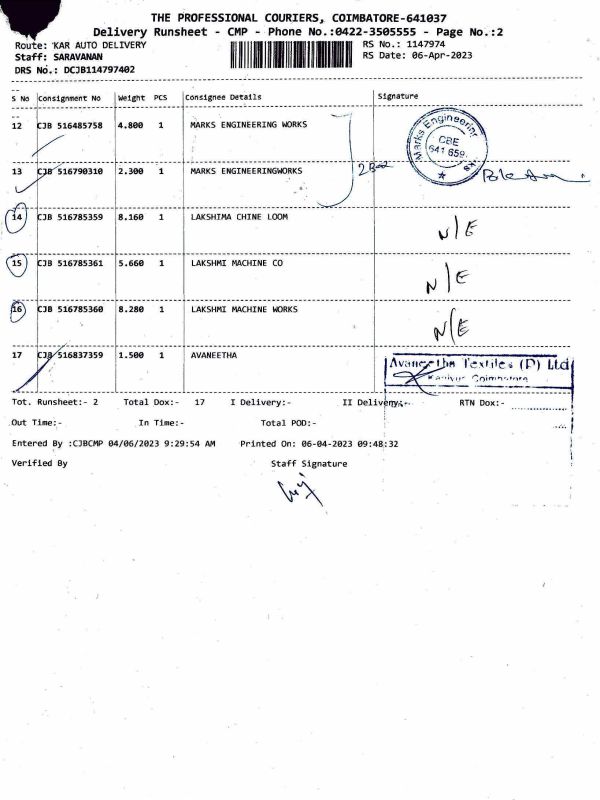 THE PROFESSIONAL COURIERS, COIMBATORE-641037
Delivery Runsheet - CMP - Phone No.:0422-3505555 - Page No.:2
Route: KAR AUTO DELIVERY RS No.: 1147974
Staff: SARAVANAN RS Date: 06-Apr-2023
DRS No.: DCJB114797402
S No Consignment No Weight PCS Consignee Details Signature
12 CJB 516485758 4.800 1 MARKS ENGINEERING WORKS
Marks Engineering
CBE
641 659.
13 CJB 516790310 2.300 1 MARKS ENGINEERINGWORKS
14 CJB 516785359 8.160 1 LAKSHIMA CHINE LOOM N/E
15 CJB 516785361 5.660 1 LAKSHMI MACHINE CO N/E
16 CJB 516785360 8.280 1 LAKSHMI MACHINE WORKS N/E
17 CJB 516837359 1.500 1 AVANEETHA Avaneetha Textiles (P) Ltd
Coimbatore
Tot. Runsheet:- 2 Total Dox:- 17 I Delivery:- II Delivery:- RTN Dox:-
Out Time:- In Time:- Total POD:-
Entered By :CJBCMP 04/06/2023 9:29:54 AM Printed On: 06-04-2023 09:48:32
Verified By Staff Signature